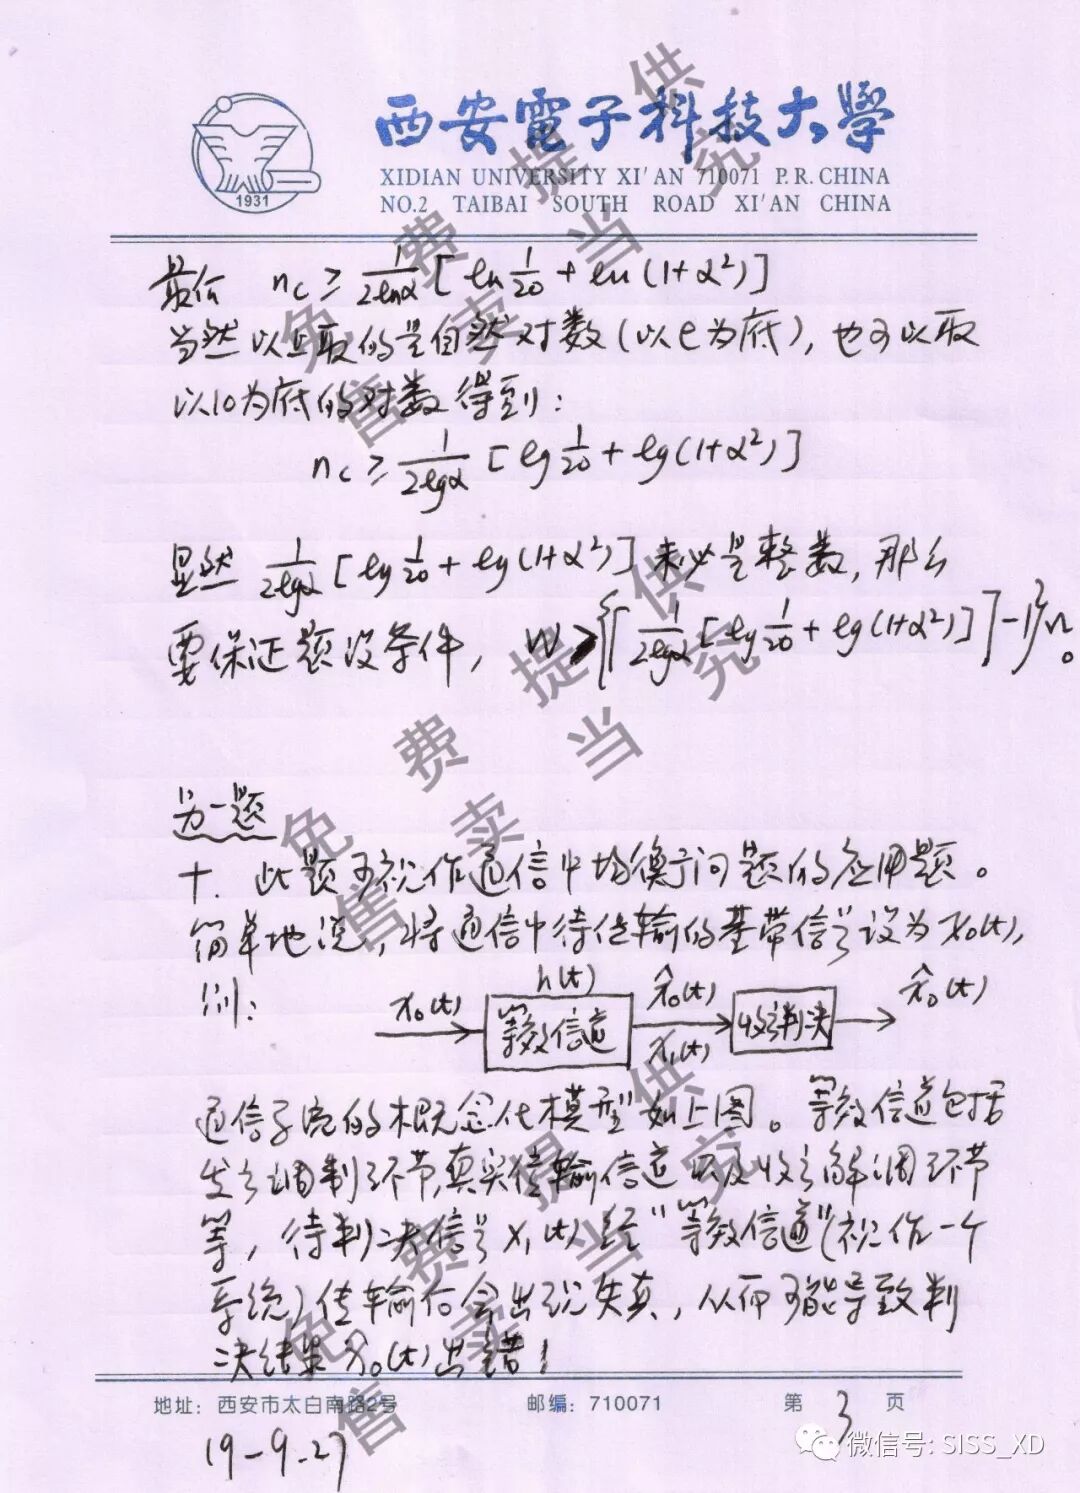 西安電子科技大學
XIDIAN UNIVERSITY XI'AN 710071 P.R.CHINA
NO.2 TAIBAI SOUTH ROAD XI'AN CHINA
1931
最后 n_c ≥ 1/(2lnα) [ln 1/20 + ln(1+α²)]
当然以上取的是自然对数(以e为底),也可以取
以10为底的对数得到:
n_c ≥ 1/(2lgα) [lg 1/20 + lg(1+α²)]
显然 1/(2lgα) [lg 1/20 + lg(1+α²)] 未必是整数,那么
要保证题设条件, W > {⌈1/(2lgα) [lg 1/20 + lg(1+α²)]⌉ - 1}Ω。
另一题
十. 此题可视作通信中均衡问题的应用题。
简单地说,将通信中待传输的基带信号设为x₀(t),
则:
x₀(t) h(t) 等效信道 x̂₀(t) x₁(t) 收端判决 x̂₀(t)
通信系统的概念化模型如上图。等效信道包括
发端调制环节,真实传输信道以及收端解调环节
等,待判决信号x₁(t)经"等效信道"(视作一个
系统)传输后会出现失真,从而可能导致判
决结果x̂₀(t)出错!
地址:西安市太白南路2号 邮编:710071 第 3 页
19-9-27
免费提供
售卖当究
免费提供
售卖当究
免费提供
售卖当究
微信号: SISS_XD